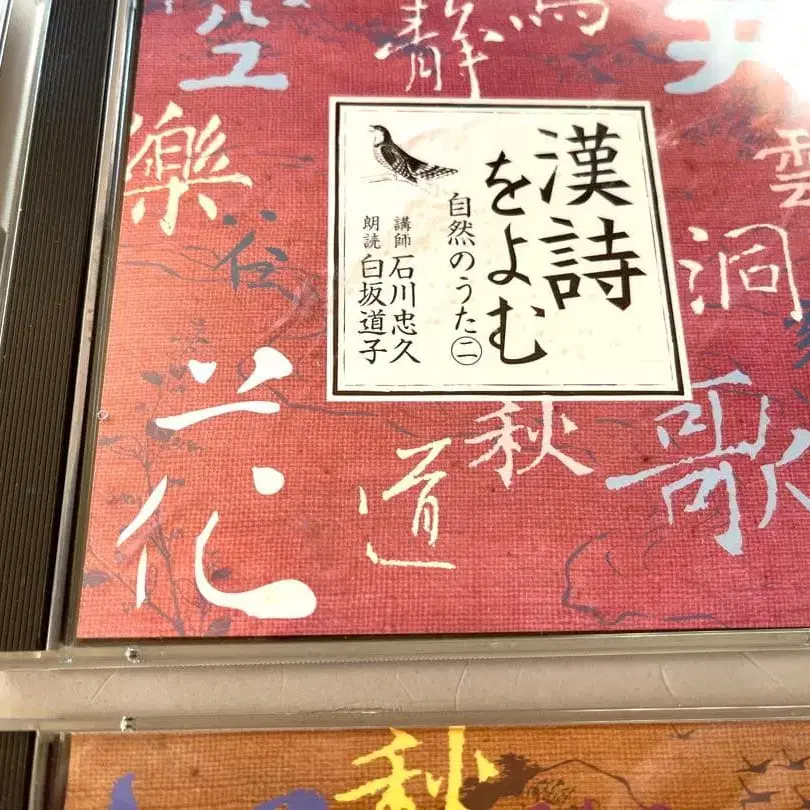 漢詩
をよむ
自然のうた㊁
講師 石川忠久
朗読 白坂道子
空
静
樂
谷
雲
洞
花
道
秋
歌
秋